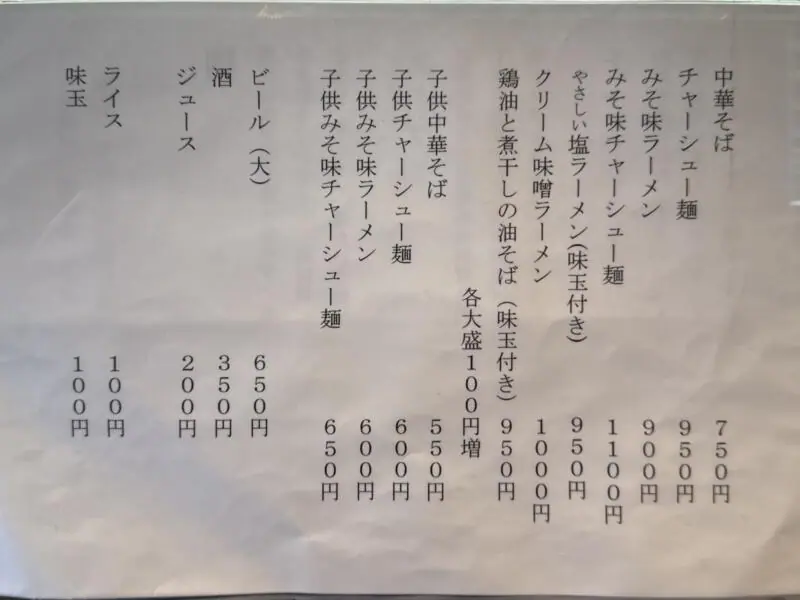 中華そば 750円
チャーシュー麺 950円
みそ味ラーメン 900円
みそ味チャーシュー麺 1100円
やさしい塩ラーメン(味玉付き) 950円
クリーム味噌ラーメン 1000円
鶏油と煮干しの油そば（味玉付き） 950円
各大盛100円増
子供中華そば 550円
子供チャーシュー麺 600円
子供みそ味ラーメン 600円
子供みそ味チャーシュー麺 650円
ビール（大） 650円
酒 350円
ジュース 200円
ライス 100円
味玉 100円